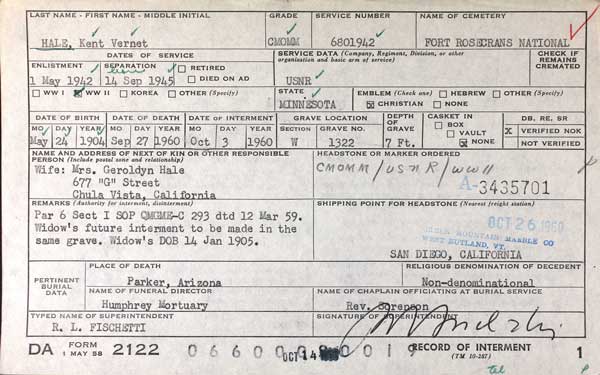 LAST NAME - FIRST NAME - MIDDLE INITIAL GRADE SERVICE NUMBER NAME OF CEMETERY
HALE, Kent Vernet CMOMM 6801942 FORT ROSECRANS NATIONAL
DATES OF SERVICE SERVICE DATA (Company, Regiment, Division, or other organization and basic arm of service) CHECK IF REMAINS CREMATED
ENLISTMENT SEPARATION RETIRED
1 May 1942 14 Sep 1945 DIED ON AD USNR
WW I X WW II KOREA OTHER (Specify) STATE MINNESOTA EMBLEM (Check one) HEBREW OTHER (Specify)
X CHRISTIAN NONE
DATE OF BIRTH DATE OF DEATH DATE OF INTERMENT GRAVE LOCATION DEPTH OF GRAVE CASKET IN DB, RE, SR
MO DAY YEAR MO DAY YEAR MO DAY YEAR SECTION GRAVE NO. BOX VAULT X VERIFIED NOK
May 24 1904 Sep 27 1960 Oct 3 1960 W 1322 7 Ft. X NONE NOT VERIFIED
NAME AND ADDRESS OF NEXT OF KIN OR OTHER RESPONSIBLE PERSON (Include postal zone and relationship)
Wife: Mrs. Geroldyn Hale
677 "G" Street
Chula Vista, California
HEADSTONE OR MARKER ORDERED
CMOMM/USNR/WWII
A-3435701
REMARKS (Authority for interment, disinterment)
Par 6 Sect I SOP QMGME-C 293 dtd 12 Mar 59.
Widow's future interment to be made in
the same grave. Widow's DOB 14 Jan 1905.
SHIPPING POINT FOR HEADSTONE (Nearest freight station)
OCT 26 1960
MOUNTAIN MARBLE CO
WEST RUTLAND, VT.
SAN DIEGO, CALIFORNIA
PERTINENT BURIAL DATA
PLACE OF DEATH RELIGIOUS DENOMINATION OF DECEDENT
Parker, Arizona Non-denominational
NAME OF FUNERAL DIRECTOR NAME OF CHAPLAIN OFFICIATING AT BURIAL SERVICE
Humphrey Mortuary Rev. Sorenson
TYPED NAME OF SUPERINTENDENT SIGNATURE OF SUPERINTENDENT
R. L. FISCHETTI
DA FORM 1 MAY 58 2122 OCT 14 RECORD OF INTERMENT
(TM 10-287) 1